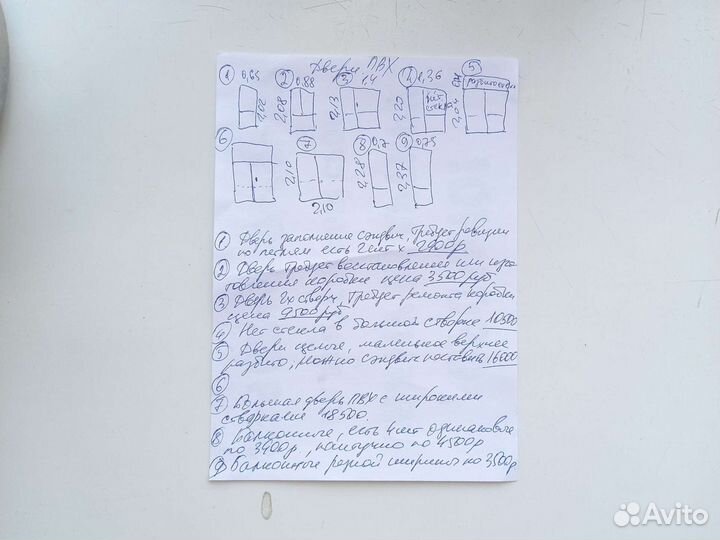 Двери ПВХ
① 0,65 ② 0,88 ③ 1,4 ④ 1,36 ⑤
1,02 2,08 2,13 2,20 нет стекла 2,04
⑥ ⑦ ⑧ 0,7 ⑨ 0,75
2,10 2,28 2,37
2,10
① Дверь заполнение сэндвич, требует ревизии
по петлям есть 2 шт х 2900р
② Дверь требует восстановления или изго
товления коробки цена 3500руб
③ Дверь 2х створч, требует ремонта коробки
цена 9500руб
④ Нет стекла в большой створке 10500
⑤ Двери целые, маленькое верхнее
разбито, можно сэндвич поставить 16000
⑥
⑦ Большая дверь ПВХ с широкими
створками 18500.
⑧ Балконные, есть 4 шт одинаковые
по 3900р, поштучно по 4500р
⑨ Балконные разной ширины по 3500р
Avito